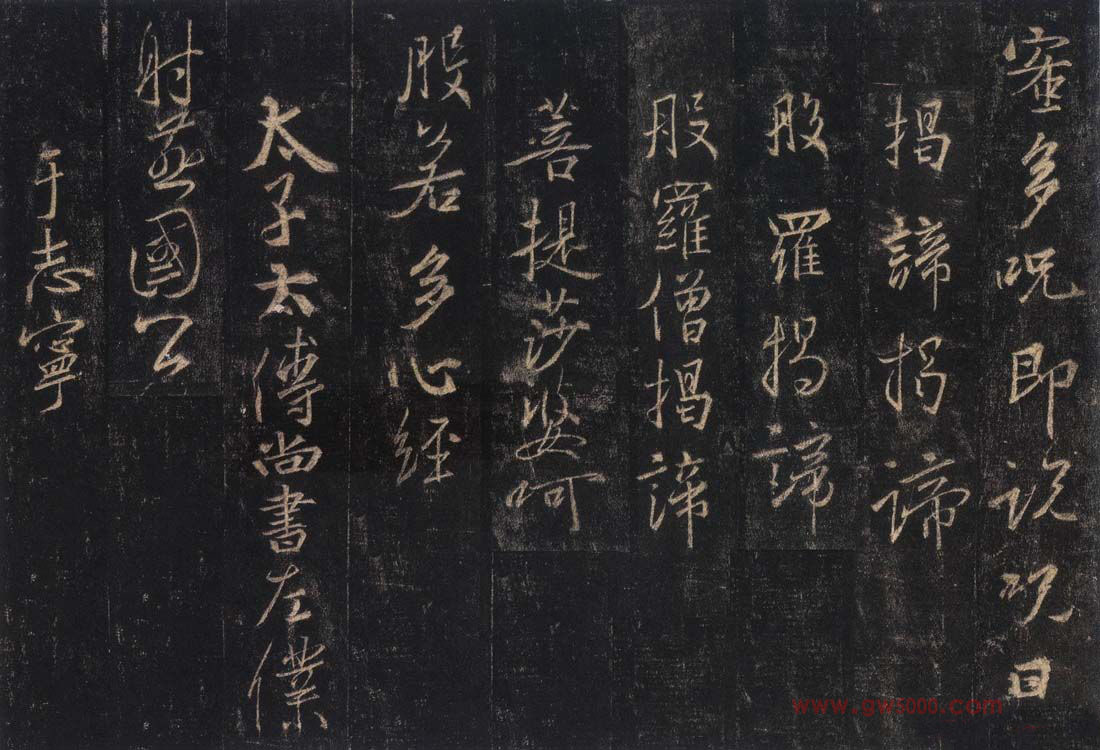 蜜多呪即說呪曰
揭諦揭諦
般羅揭諦
般羅僧揭諦
菩提莎婆呵
般若多心經
太子太傅尚書左僕
射燕國公
于志寧
www.gw5000.com